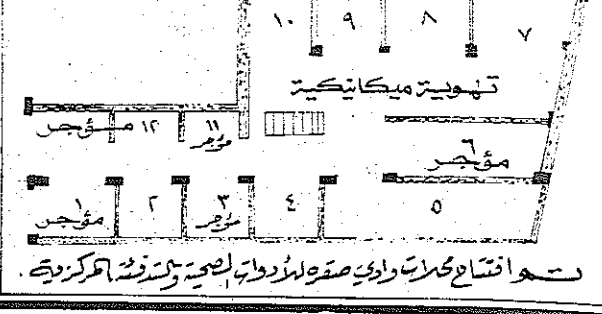 ١٠ ٩ ٨ ٧
تهوية ميكانيكية
مؤجر ١٢ ١١ مؤجر
٦ مؤجر
١ مؤجر ٢ ٣ مؤجر ٤ ٥
تم افتتاح محلات وادي صقره للأدوات الصحية والتدفئة المركزية .